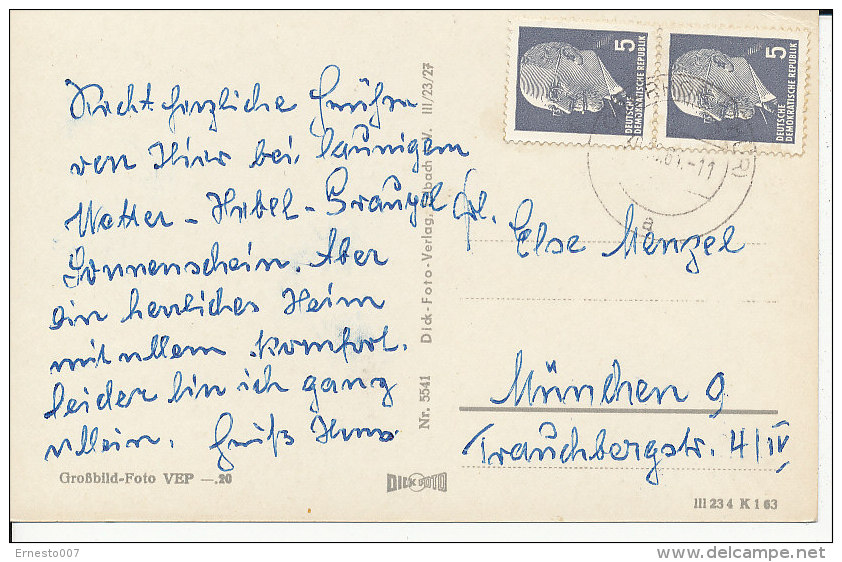 Recht herzliche Grüße
von Hier bei launigem
Wetter - Nebel - Graupel
Sonnenschein. Aber
ein herrliches Heim
mit allem Komfort.
Leider bin ich ganz
allein. Gruß Hans
Großbild-Foto VEP —.20
Nr. 5541 Dick-Foto-Verlag, III/23/27
DICK FOTO
5
DEUTSCHE
DEMOKRATISCHE REPUBLIK
5
DEUTSCHE
DEMOKRATISCHE REPUBLIK
Frl. Else Menzel
München 9
Trauchbergstr. 4/IV
III 23 4 K 1 63
Ernesto007
www.delcampe.net